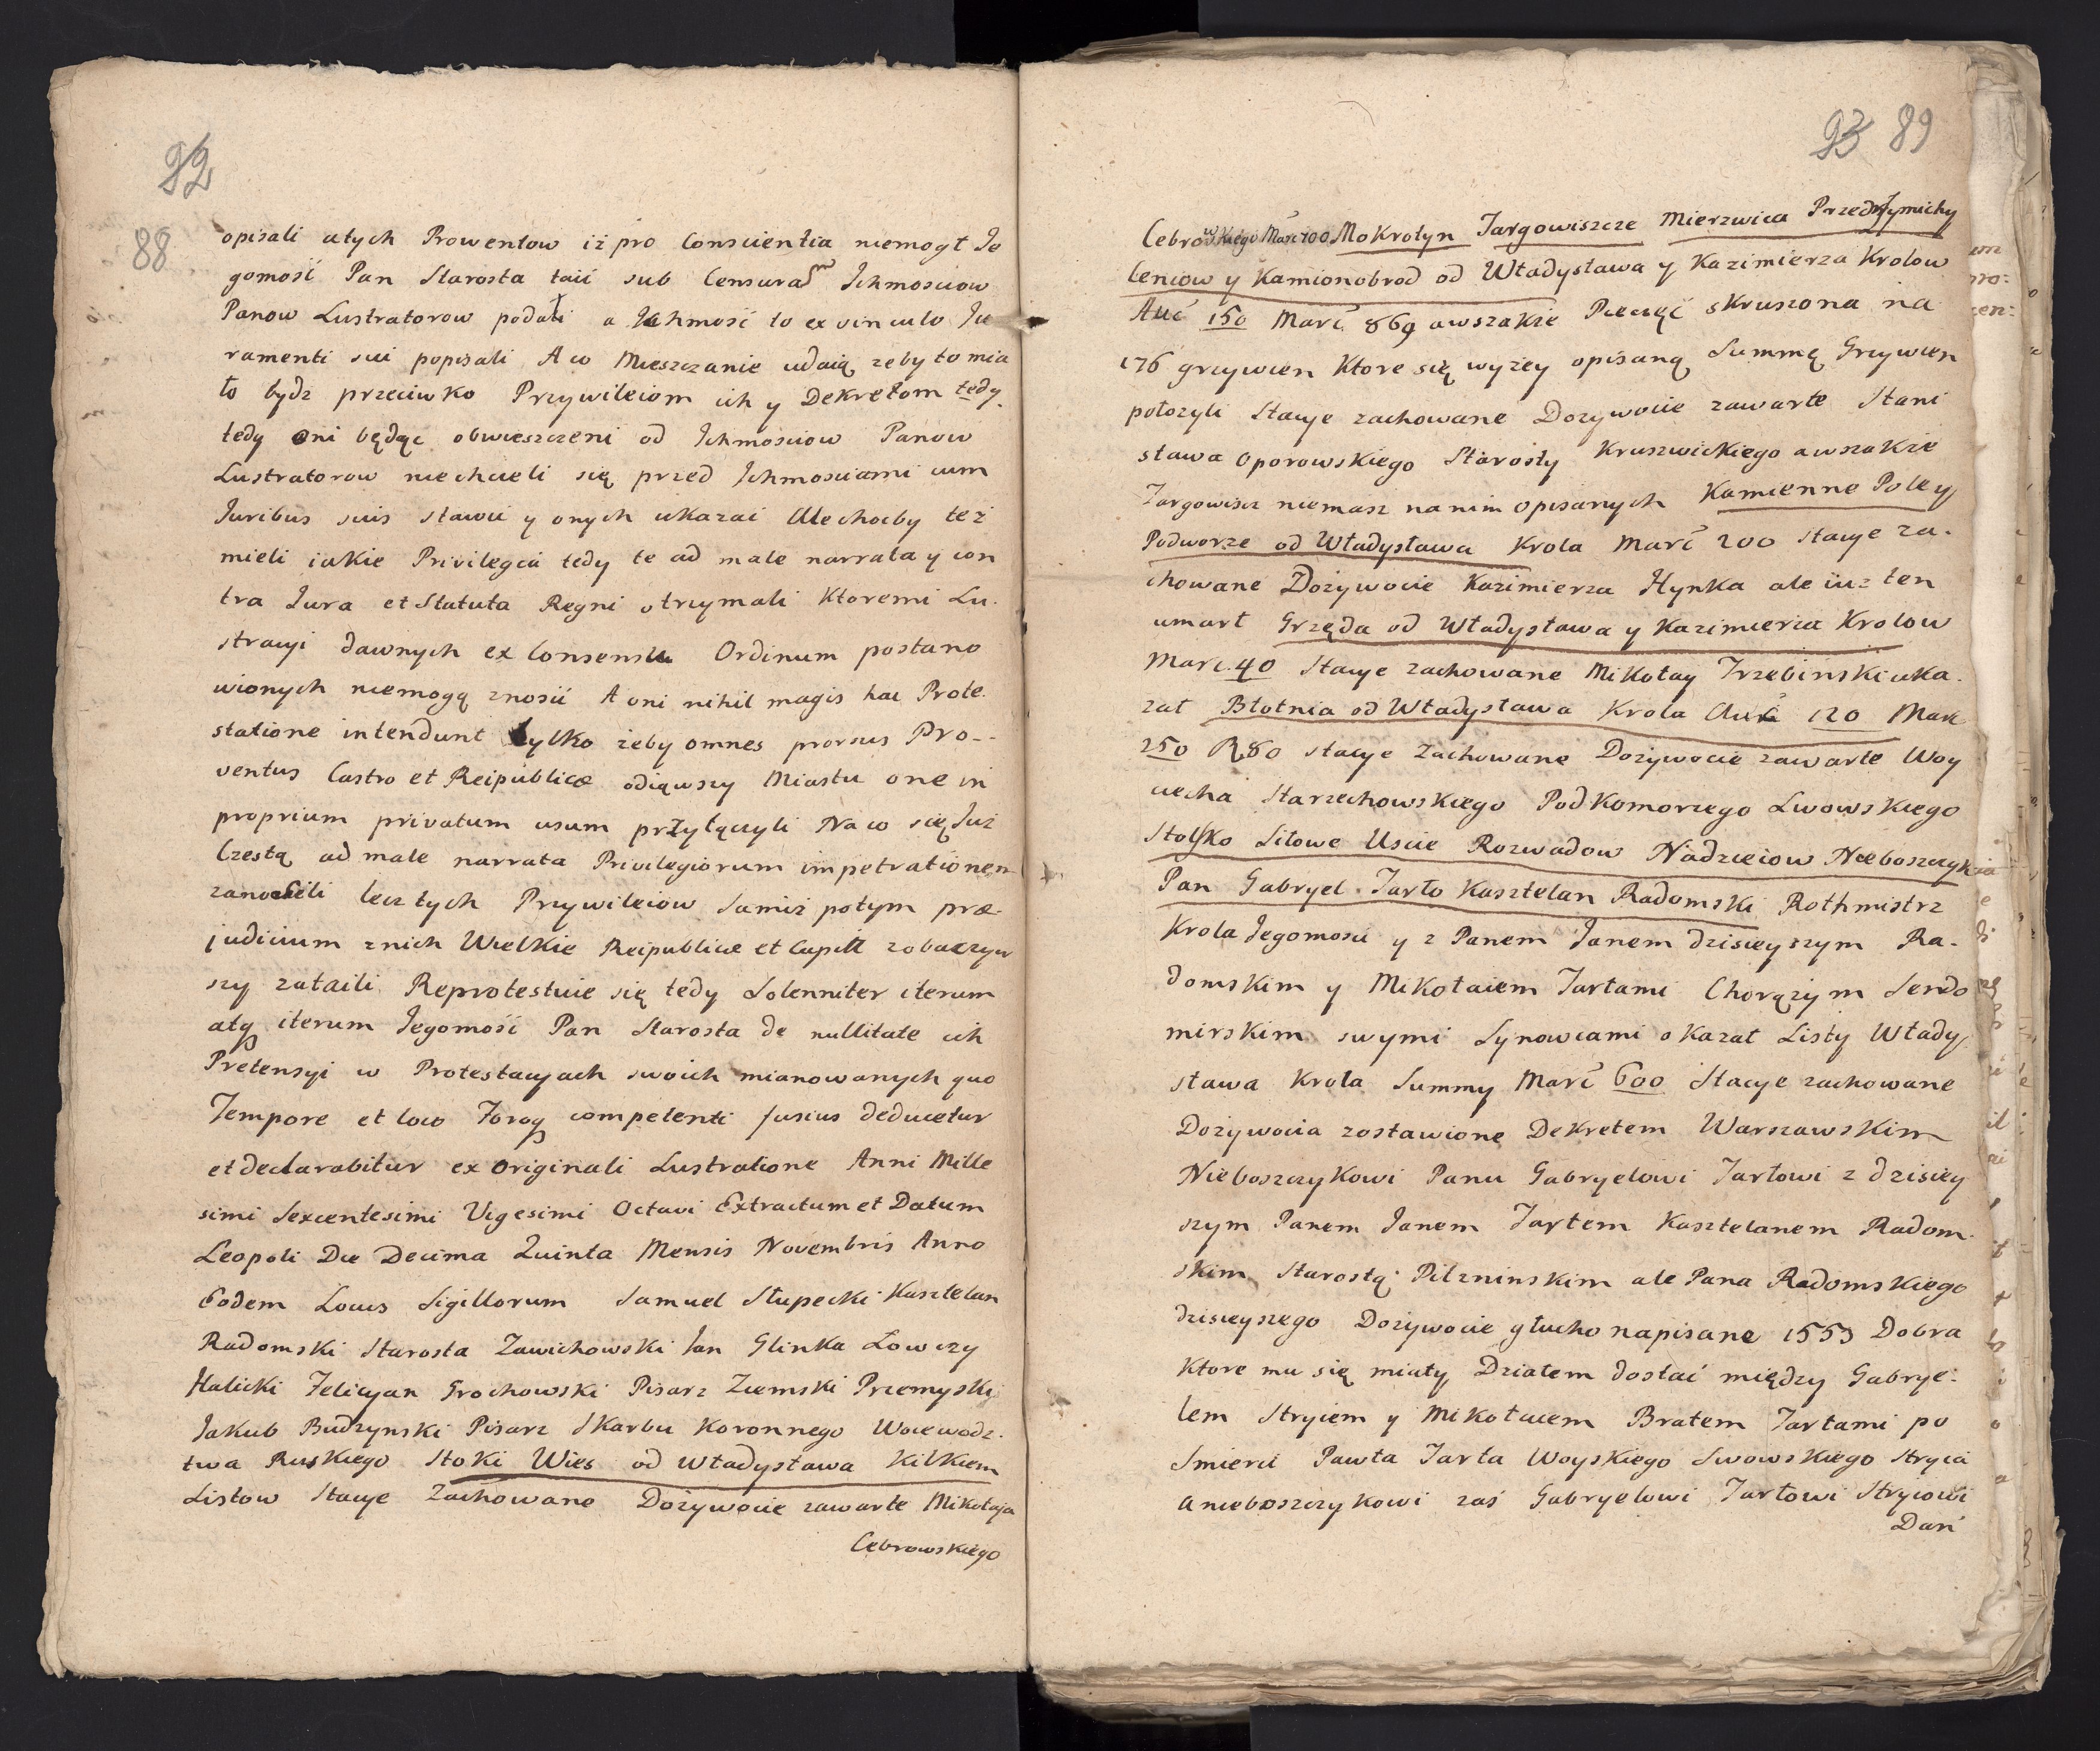 92
88
opisali atych Prowentow iż pro Conscientia niemogł Je
gomość Pan Starosta taić sub Censura Ichmosciow
Panow Lustratorow podali a Ichmość to ex vinculo Ju
ramenti sui popisali A co Mieszczanie udaią zeby to mia
to bydz przeciwko Przywileiom ich y Dekretom tedy
tedy oni będąc obwieszczeni od Ichmosciow Panow
Lustratorow niechcieli się przed Ichmosciami cum
Juribus suis stawić y onych ukazać Alechocby też
mieli iakie Privilegia tedy te ad male narrata y con
tra Jura et Statuta Regni otrzymali Ktoremi Lu.
stracyi dawnych ex Consensu Ordinum postano
wionych niemogą znosić A oni nihil magis hac Prote
statione intendunt tylko żeby omnes prorsus Pro-
ventus Castro et Reipublicæ odiąwszy Miastu one in
proprium privatum usum przyłączyli Na co się Już
Częstą ad male narrata Privilegiorum impetrationem
zanosili lecz tych Przywileiow Samiż potym præ
judicium z nich Wielkie Reipublicæ et Capit zobaczyw
szy zataili Reprotestuie się tedy Solenniter iterum
atq iterum Jegomość Pan Starosta de nullitate ich
Pretensyi w Protestacyach swoich mianowanych quo
Tempore et loco Foroq competenti fusius deducetur
et declarabitur ex Originali Lustratione Anni Mille
simi Sexcentesimi Vigesimi Octavi Extractum et Datum
Leopoli Die Decima Quinta Mensis Novembris Anno
Eodem Locus Sigillorum Samuel Słupecki Kasztelan
Radomski Starosta Zawichowski Jan Glinka Łowczy
Halicki Felicyan Grochowski Pisarz Ziemski Przemyski
Jakub Budzynski Pisarz Skarbu Koronnego Woiewodz.
twa Ruskiego Stoki Wies od Władysława Kilkiem
Listow Stacye Zachowane Dożywocie zawarte Mikołaja
Cebrowskiego
93 89
Cebrowskiego Marc 100 Mokrotyn Targowiszcze Mierzwica Przedrzymichy
Ceniow y Kamionobrod od Władysława y Kazimierza Krolow
Auć 150 Marć 869 awszakże Pieczęć skruszona na
176 grzywien Ktore się wyżey opisaną Summę Grzywien
położyli Stacye zachowane Dożywocie zawarte Stani
sława Oporowskiego Starosty Kruszwickiego awszakże
Targowisz niemasz na nim opisanych Kamienne Pole y
Podworze od Władysława Krola Marć 200 Stacye za.
chowane Dożywocie Kazimierza Hynka ale iuz ten
umarł Grzęda od Władysława y Kazimierza Krolow
Marć. 40 Stacye zachowane Mikołay Trzebinski uka.
zał Błotnia od Władysława Krola Auć 120 Marc
250 R 80 stacye Zachowane Dożywocie zawarte Woy
ciecha Starzechowskiego Podkomorzego Lwowskiego
Stolsko Sitowe Uscie Rozwadow Nadzieiow Nieboszczyk
Pan Gabryel Tarło Kasztelan Radomski Rothmistrz
Krola Jegomosci y z Panem Janem dzisieyszym Ra-
domskim y Mikołaiem Tarłami Chorążym Sendo
mirskim swymi Synowcami okazał Listy Włady
sława Krola Summy Marć 600 Stacye zachowane
Dożywocia zostawione Dekretem Warszawskim
Nieboszczykowi Panu Gabryelowi Tarłowi z dzisiey
szym Panem Janem Tarłem Kasztelanem Radom-
skim Starostą Pilzninskim ale Pana Radomskiego
dzisieyszego Dożywocie głucho napisane 1553 Dobra
Ktore mu się miały Działem dostać między Gabrye-
lem Stryiem y Mikołaiem Bratem Tarłami po
Smierci Pawła Tarła Woyskiego Lwowskiego Stryia
A nieboszczykowi zaś Gabryelowi Tarłowi Stryiowi
Dań